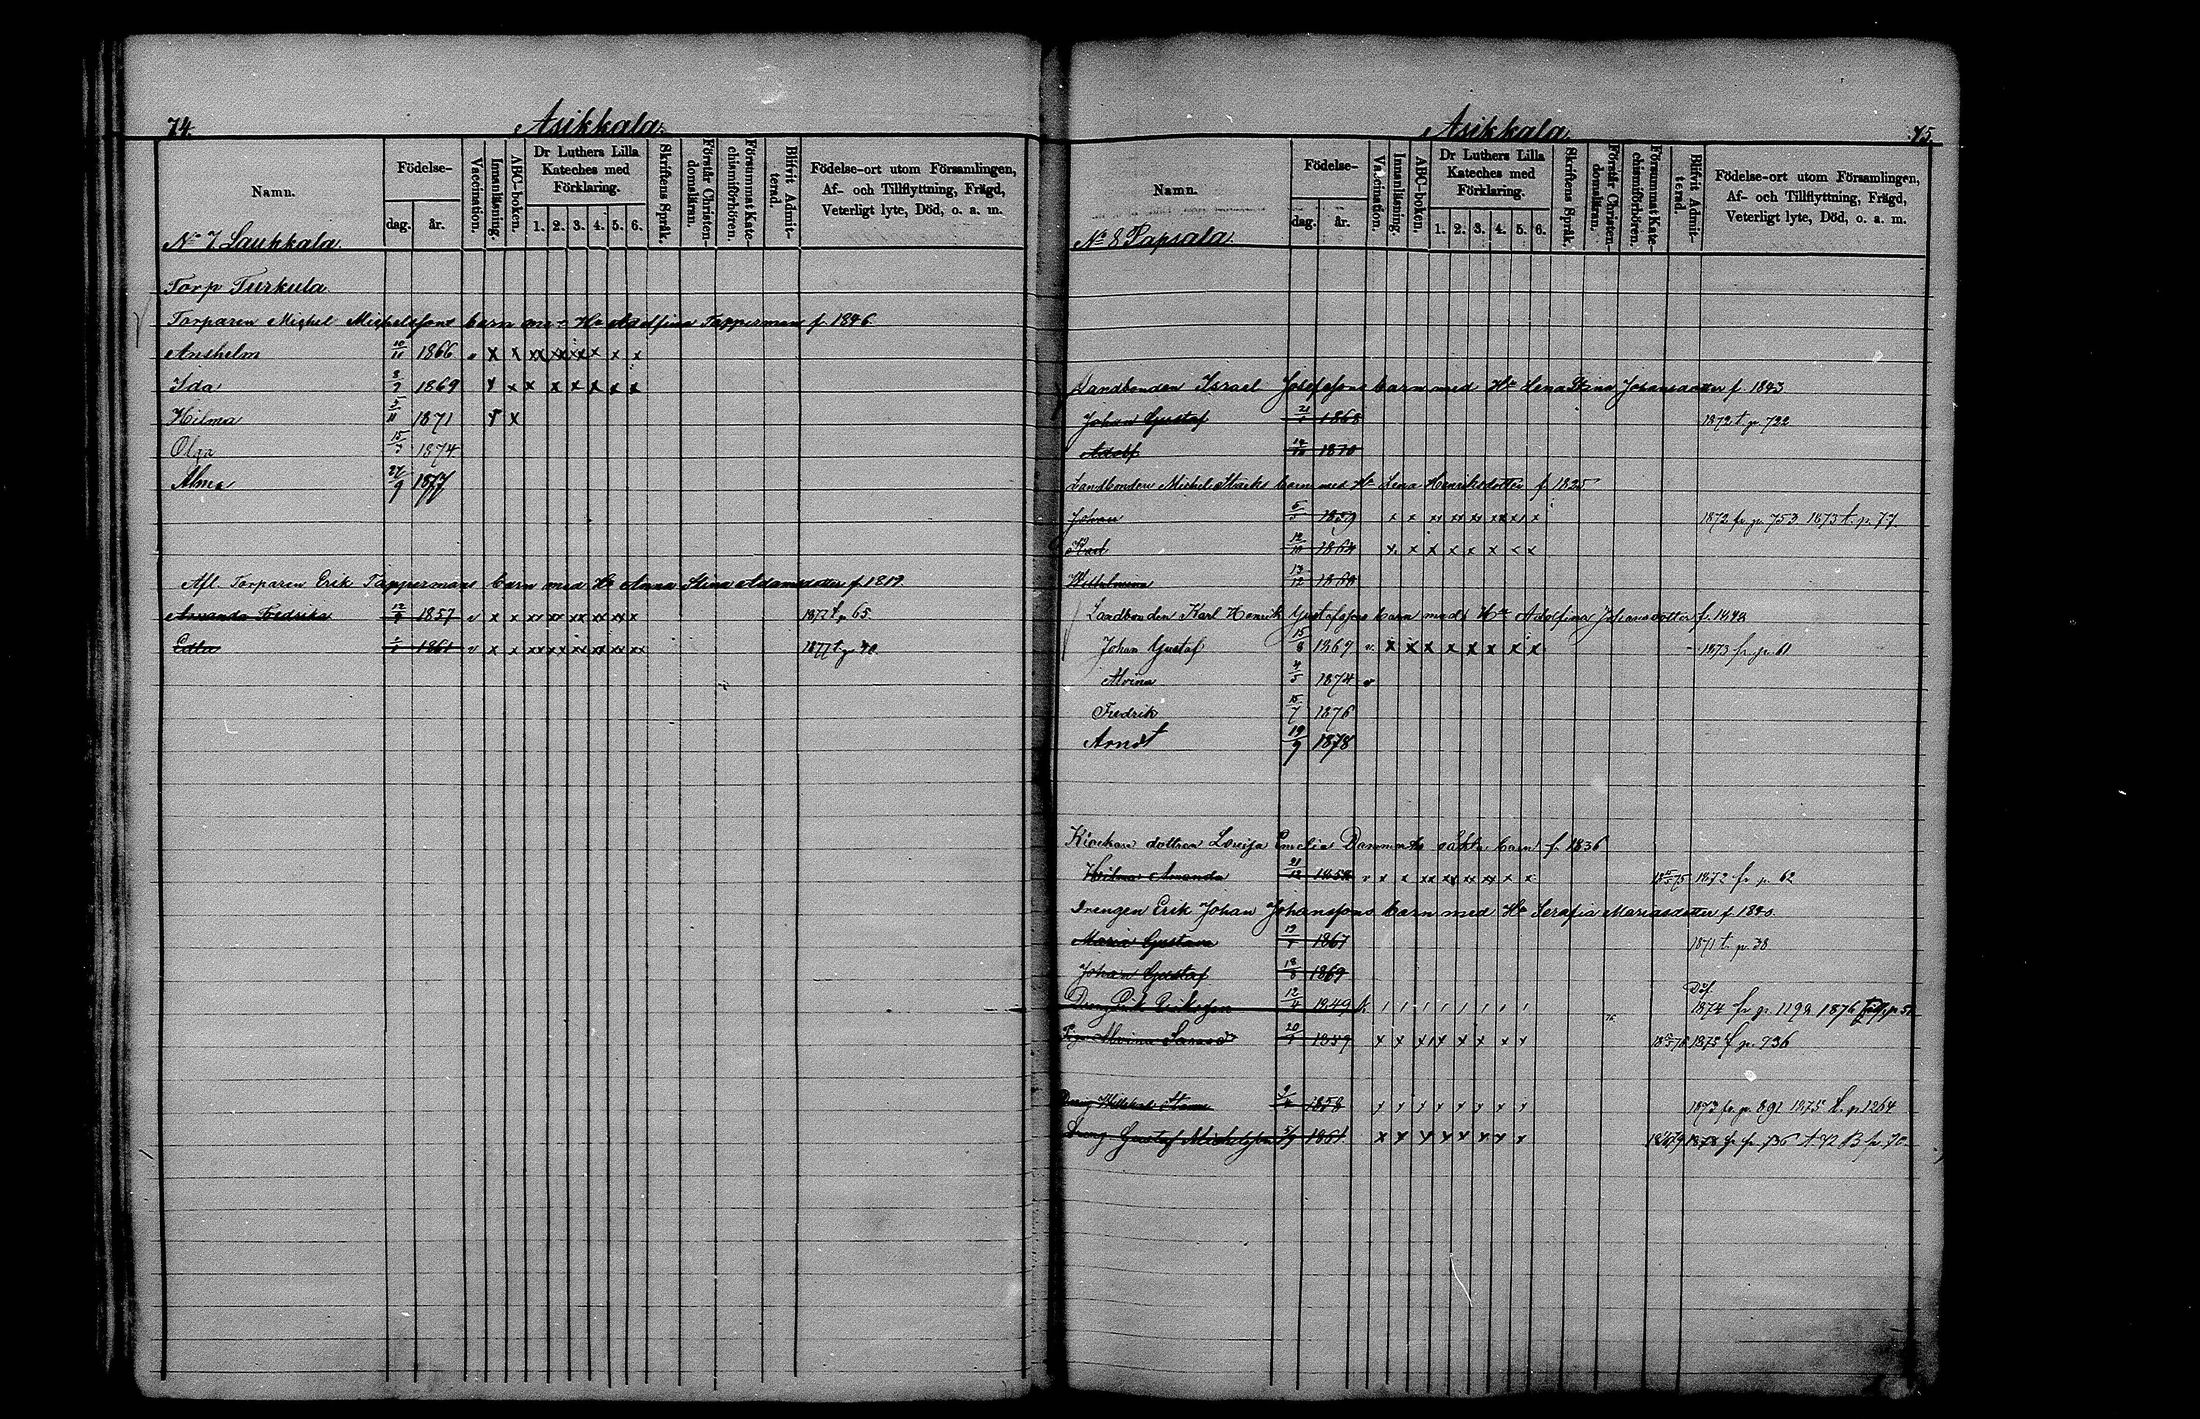 74. Asikkala.
Namn. Födelse- dag. år. Vaccination. Innanläsning. ABC-boken. Dr Luthers Lilla Kateches med Förklaring. 1. 2. 3. 4. 5. 6. Skriftens Språk. Förstår Christendomsläran. Försummat Katechismiförhören. Blifvit Admitterad. Födelse-ort utom Församlingen, Af- och Tillflyttning, Frägd, Veterligt lyte, Död, o. a. m.
No 7 Laukkala.
Torp Turkula
Torparen Michel Michelssons barn med Hu Adolfina Tapperman f. 1846.
Anshelm 10/11 1866 v x x xx xx xx x x x
Ida 1869 x x x x x x x x
Hilma 1871 x x
Olga 1874
Alma 27/9 1877
Afl. Torparen Erik Tappermans barn med Hu Anna Stina Adamsdotter f. 1819.
Amanda Fredrika 1857 v x x xx xx xx xx xx x 1877 t. p. 65.
Edla 1861 v x x xx xx xx xx xx xx 1877 t. p. 40.
Asikkala 75.
Namn. Födelse- dag. år. Vaccination. Innanläsning. ABC-boken. Dr Luthers Lilla Kateches med Förklaring. 1. 2. 3. 4. 5. 6. Skriftens Språk. Förstår Christendomsläran. Försummat Katechismiförhören. Blifvit Admitterad. Födelse-ort utom Församlingen, Af- och Tillflyttning, Frägd, Veterligt lyte, Död, o. a. m.
No 8 Papsala.
Landbonden Israel Josefssons barn med Hu Lena Stina Johansdotter f. 1843
Johan Gustaf 1868 1872 t. p. 722
Adolf 1870
Landbonden Michel Starks barn med Hu Lena Henriksdotter f. 1825
Johan 5/5 1859 x x xx xx xx xx xx x 1872 fr. p. 753 1873 t. p. 77
Karl 1864 x x x x x x x x
Wilhelmina 13/12 1868
Landbonden Karl Henrik Gustafssons barn med Hu Adolfina Johansdotter f. 1848
Johan Gustaf 15/8 1869 v. x x x x x x x x 1873 fr. p. 61
Alvina 4/5 1874 v
Fredrik 15/7 1876
Arndt 19/9 1878
Lovisa Emelia oäkta barn f. 1836
Hilma Amanda 21/12 1858 v x x xx xx xx xx x x 1872 fr. p. 62
Drengen Erik Johan Johanssons barn med Hu Serafia Mariasdotter f. 1840.
Maria Gustava 1867 1871 t. p. 38
Johan Gustaf 18/8 1869
Dreng Erik Eriksson 12/4 1849 1874 fr. p. 1192 1876
Alvina 1859 x x x x x x x x 1875 f. p. 736
Dreng 1858 1872 fr. p. 891 1875 t. p. 1264
Dreng Gustaf Michelsson 5/9 1861 x x x x x x x x